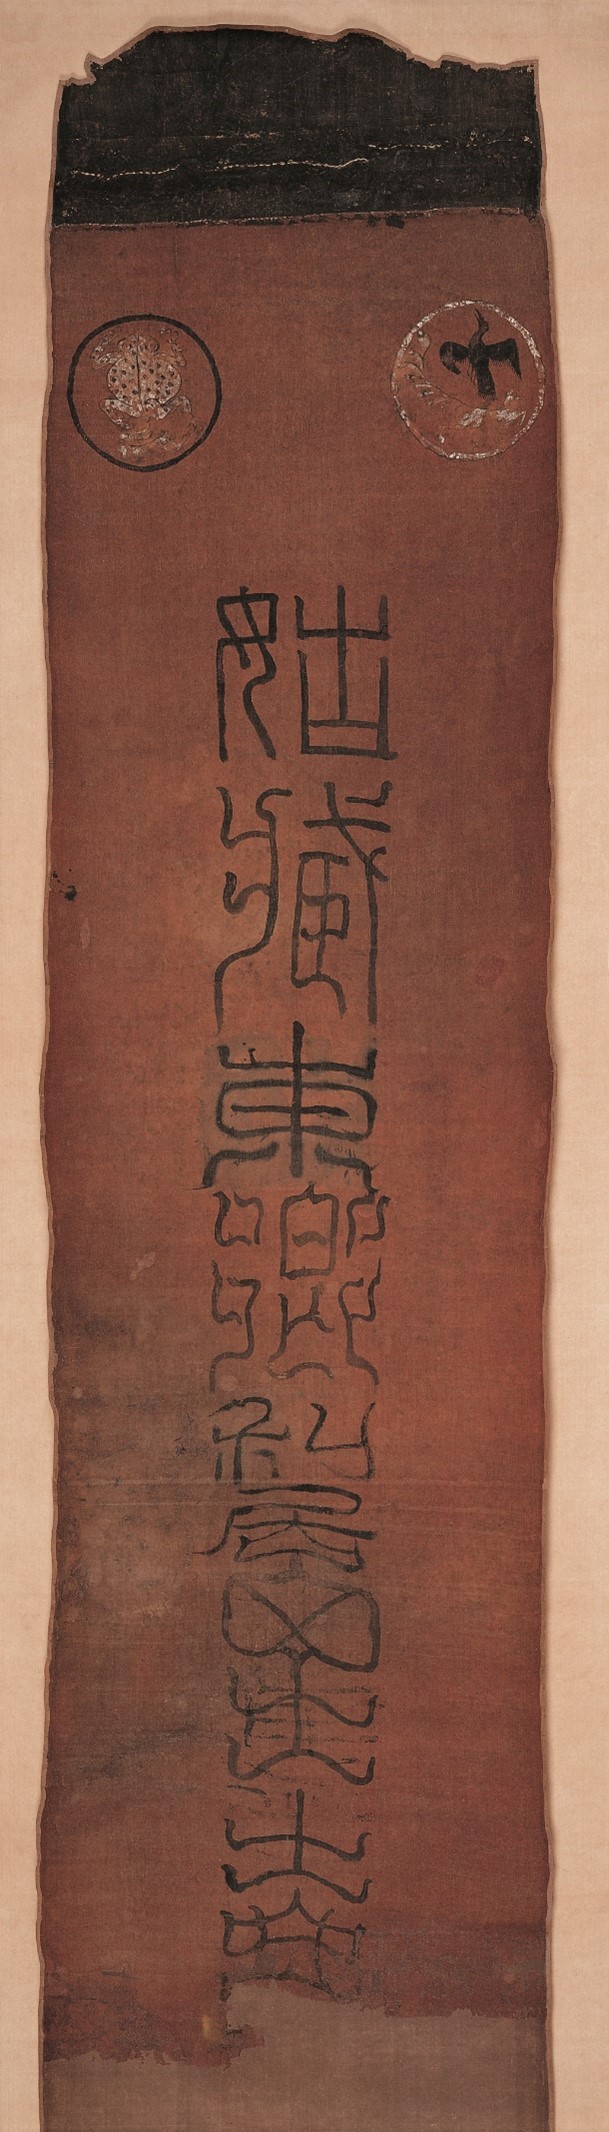 姑臧東鄉利居里